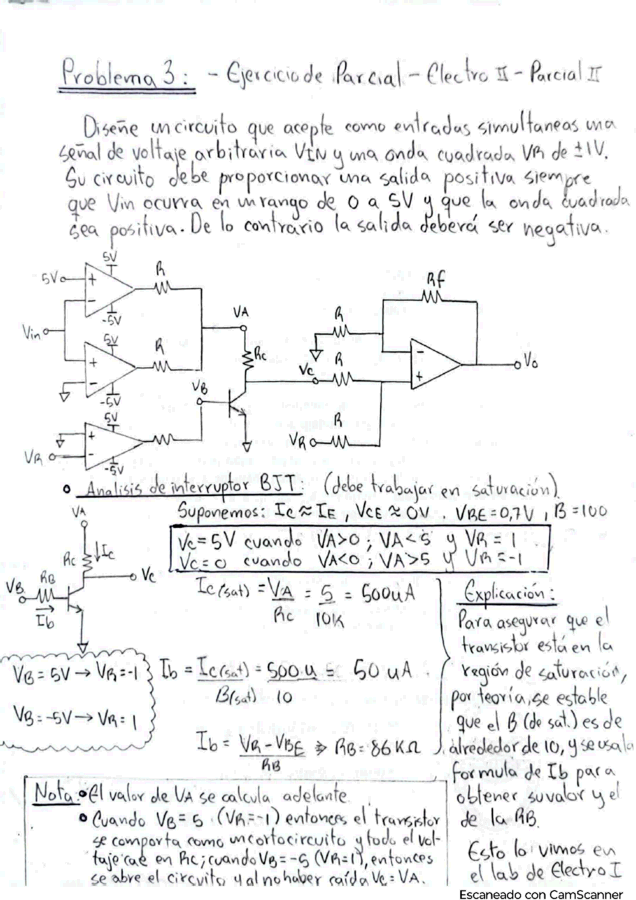 Problema 3: - Ejercicio de Parcial - Electro II - Parcial II
Diseñe un circuito que acepte como entradas simultaneas una
señal de voltaje arbitraria VIN y una onda cuadrada VR de ±1V.
Su circuito debe proporcionar una salida positiva siempre
que Vin ocurra en un rango de 0 a 5V y que la onda cuadrada
sea positiva. De lo contrario la salida deberá ser negativa.
5V
5V
+
-
R
-5V
Vin
5V
+
-
R
-5V
VR
5V
+
-
-5V
VA
Rc
VB
Vc
R
R
VR
R
Rf
-
+
Vo
• Analisis de interruptor BJT: (debe trabajar en saturación)
Suponemos: Ic ≈ IE, VCE ≈ 0V. VBE = 0,7V, B = 100
Vc = 5V cuando VA>0 ; VA<5 y VR = 1
Vc = 0 cuando VA<0 ; VA>5 y VR = -1
VA
Rc
Ic
Vc
VB
RB
Ib
Ic(sat) = VA/Rc = 5/10K = 500uA
Ib = Ic(sat)/B(sat) = 500u/10 = 50 uA.
Ib = VR - VBE/RB ⇒ RB = 86 KΩ
VB = 5V → VR = -1
VB = -5V → VR = 1
Explicación:
Para asegurar que el
transistor está en la
región de saturación,
por teoría, se estable
que el B (de sat.) es de
alrededor de 10, y se usa la
formula de Ib para
obtener su valor y el
de la RB.
Esto lo vimos en
el lab de Electro I
Nota: • El valor de VA se calcula adelante
• Cuando VB = 5 (VR=-1) entonces el transistor
se comporta como un cortocircuito y todo el vol-
taje cae en Rc; cuando VB = -5 (VR=1), entonces
se abre el circuito y al no haber caída Vc = VA.
Escaneado con CamScanner